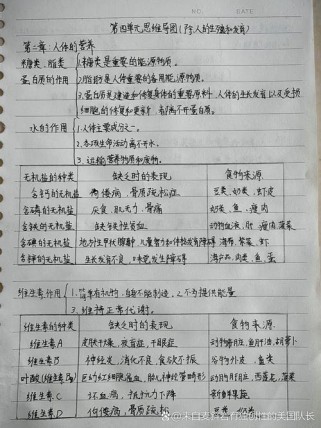 NO.
DATE
第四单元思维导图(7下人的生殖和发育)
第二章:人体的营养
糖类、脂类 1.糖类是重要的能源物质。
蛋白质的作用 2.脂肪是人体重要的备用能源物质。
3.蛋白质是建造和修复身体的重要原料,人体的生长发育以及受损
细胞的修复和更新,都离不开蛋白质。
水的作用 1.人体主要成分之一。
2.各项生命活动离不开水。
3.运输营养物质和废物。
无机盐的种类 缺乏时的表现 食物来源
含钙的无机盐 佝偻病、骨质疏松症 豆类、奶类、虾皮
含磷的无机盐 厌食、肌无力、骨痛 奶类、鱼、瘦肉
含铁的无机盐 缺铁性贫血 动物血液、肝、瘦肉、菠菜
含碘的无机盐 地方性甲状腺肿、儿童智力和体格发育障碍 海带、紫菜、虾
含锌的无机盐 生长发育不良、味觉发生障碍 海产品、肉类、鱼、蛋
维生素作用 1.一类有机物,自身不能制造。2.不为提供能量
3.维持正常代谢。
维生素的种类 缺乏时的表现 食物来源
维生素A 皮肤干燥、夜盲症、干眼症 动物肝脏、鱼肝油、胡萝卜
维生素B 神经炎、消化不良、食欲不振 谷物外皮、鱼类
叶酸(维生素 巨幼红细胞贫血、胎儿神经管畸形 动物肝脏、西蓝花、菠菜
维生素C 坏血病、抵抗力下降 新鲜果蔬
维生素D 佝偻病、骨质疏松